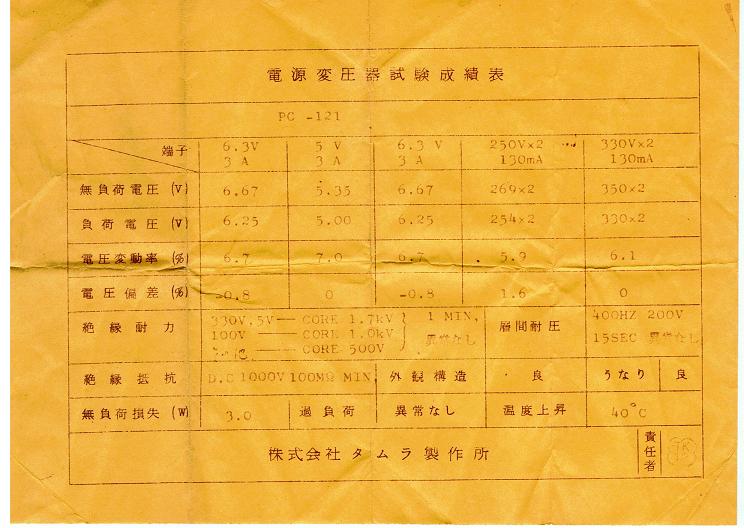 電源変圧器試験成績表
PC -121
端子 6.3V 3A 5V 3A 6.3V 3A 250V×2 130mA 330V×2 130mA
無負荷電圧 (V) 6.67 5.35 6.67 269×2 350×2
負荷電圧 (V) 6.25 5.00 6.25 254×2 330×2
電圧変動率 (%) 6.7 7.0 6.7 5.9 6.1
電圧偏差 (%) -0.8 0 -0.8 1.6 0
絶縁耐力 330V,5V — CORE 1.7kV 1 MIN, 層間耐圧 400HZ 200V
100V — CORE 1.0kV 異常なし 15SEC 異常なし
その他 — CORE 500V
絶縁抵抗 D.C 1000V 100MΩ MIN. 外観構造 良 うなり 良
無負荷損失 (W) 3.0 過負荷 異常なし 温度上昇 40°C
株式会社タムラ製作所 責任者